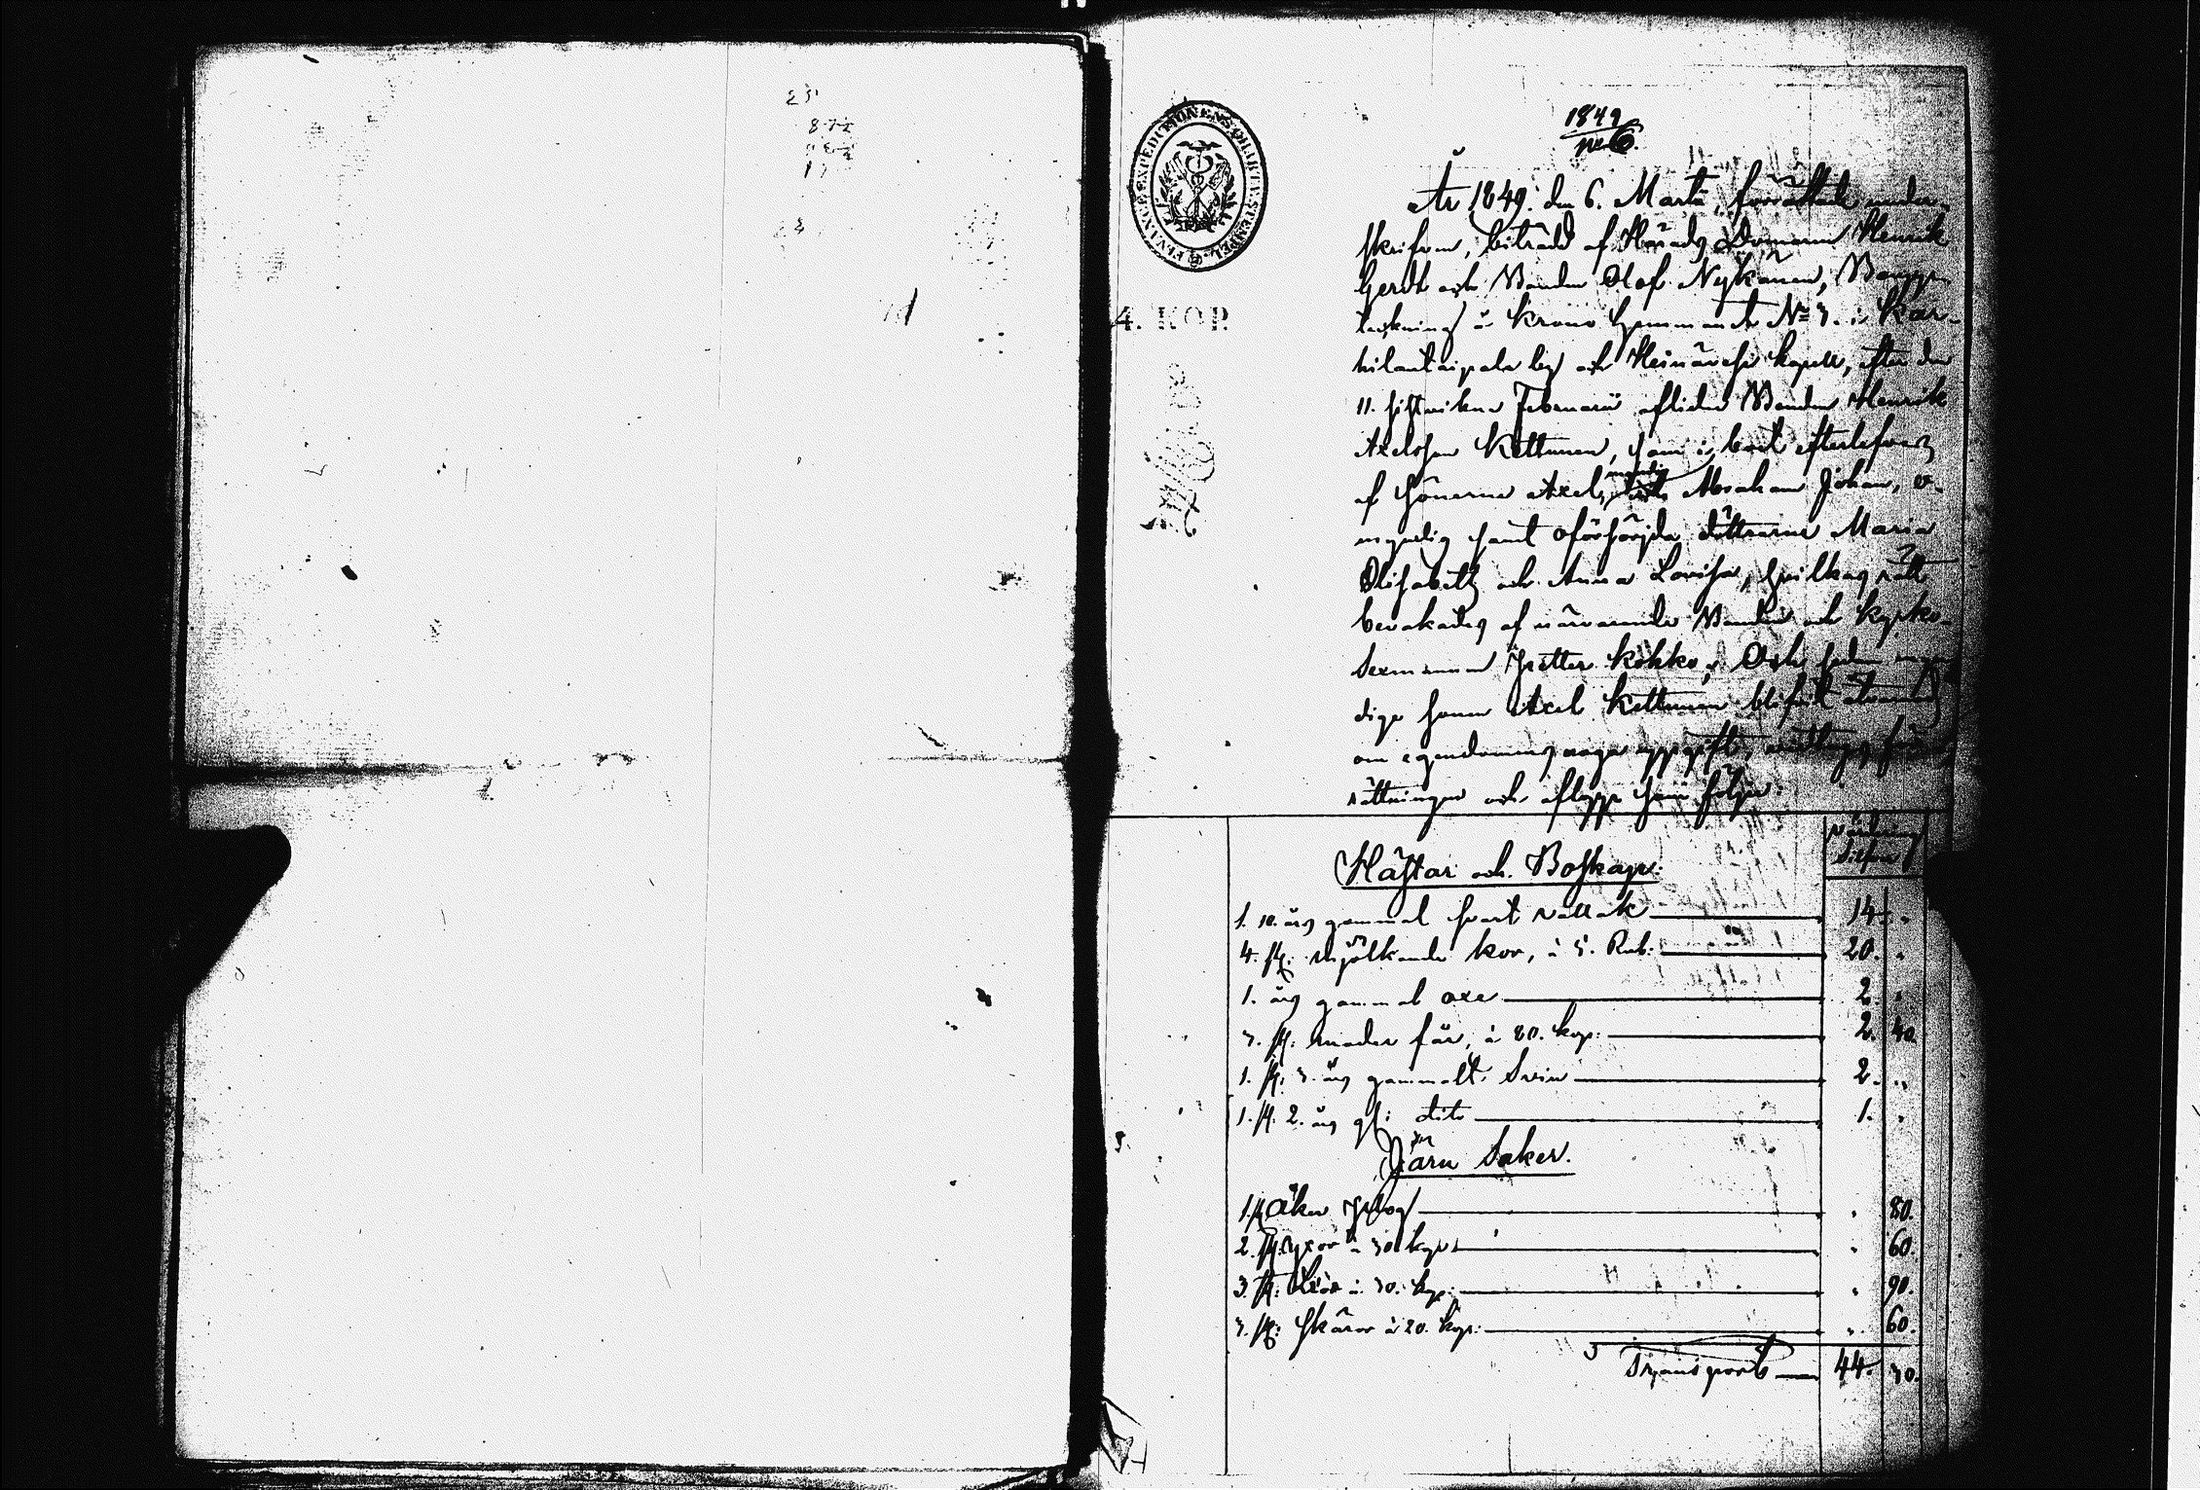 1849
№ 6.
FINANCE EXPEDITIONENS CHARTÆ STEMPEL
4. KOP.
År 1849. den 6. Martii, förrättade under-
skrifven, biträdd af Härads Domaren Henrik
Gerdt och Bonden Olof Nykänen, Bouppe-
teckning å Krono hemmanet No 3. i Kar-
hilantaipale by och Heinävesi Kapell, efter den
11. sistvikne Februarii aflidne Bonden Henrik
Axelsson Kettunen, som i lvet efterlefves
af Sönerne Axel, myndig Abraham Johan, o-
myndig samt oförsörjda döttrarne Maria
Elisabeth och Anna Lovisa, hvilkas rätt
bevakades af närvarande Bonden och Kyrko-
Sexmannen Petter Kokko, Och sedan myn-
dige sonen Axel Kettunen blifvit
om egendomens noga uppgift, vidtogs för-
rättningen och aflopp som följer:
Värdering
Silfver
Hästar och Boskap:
1. 10. års gammal svart vallak 14. "
4. st: mjölkande kor, à 5. Rub: 20. "
1. års gammal oxe 2. "
3. st: moder får, à 80. kop: 2. 40.
1. st: 3. års gammalt Svin 2. "
1. st. 2. års gl: dito 1. "
Järn Saker.
1. st Åker Plog " 80.
2. st. yxor à 30 kop: " 60.
3. st: Liar à 30. kop: " 90.
3. st: skäror à 20. kop: " 60.
Transport 44. 30.